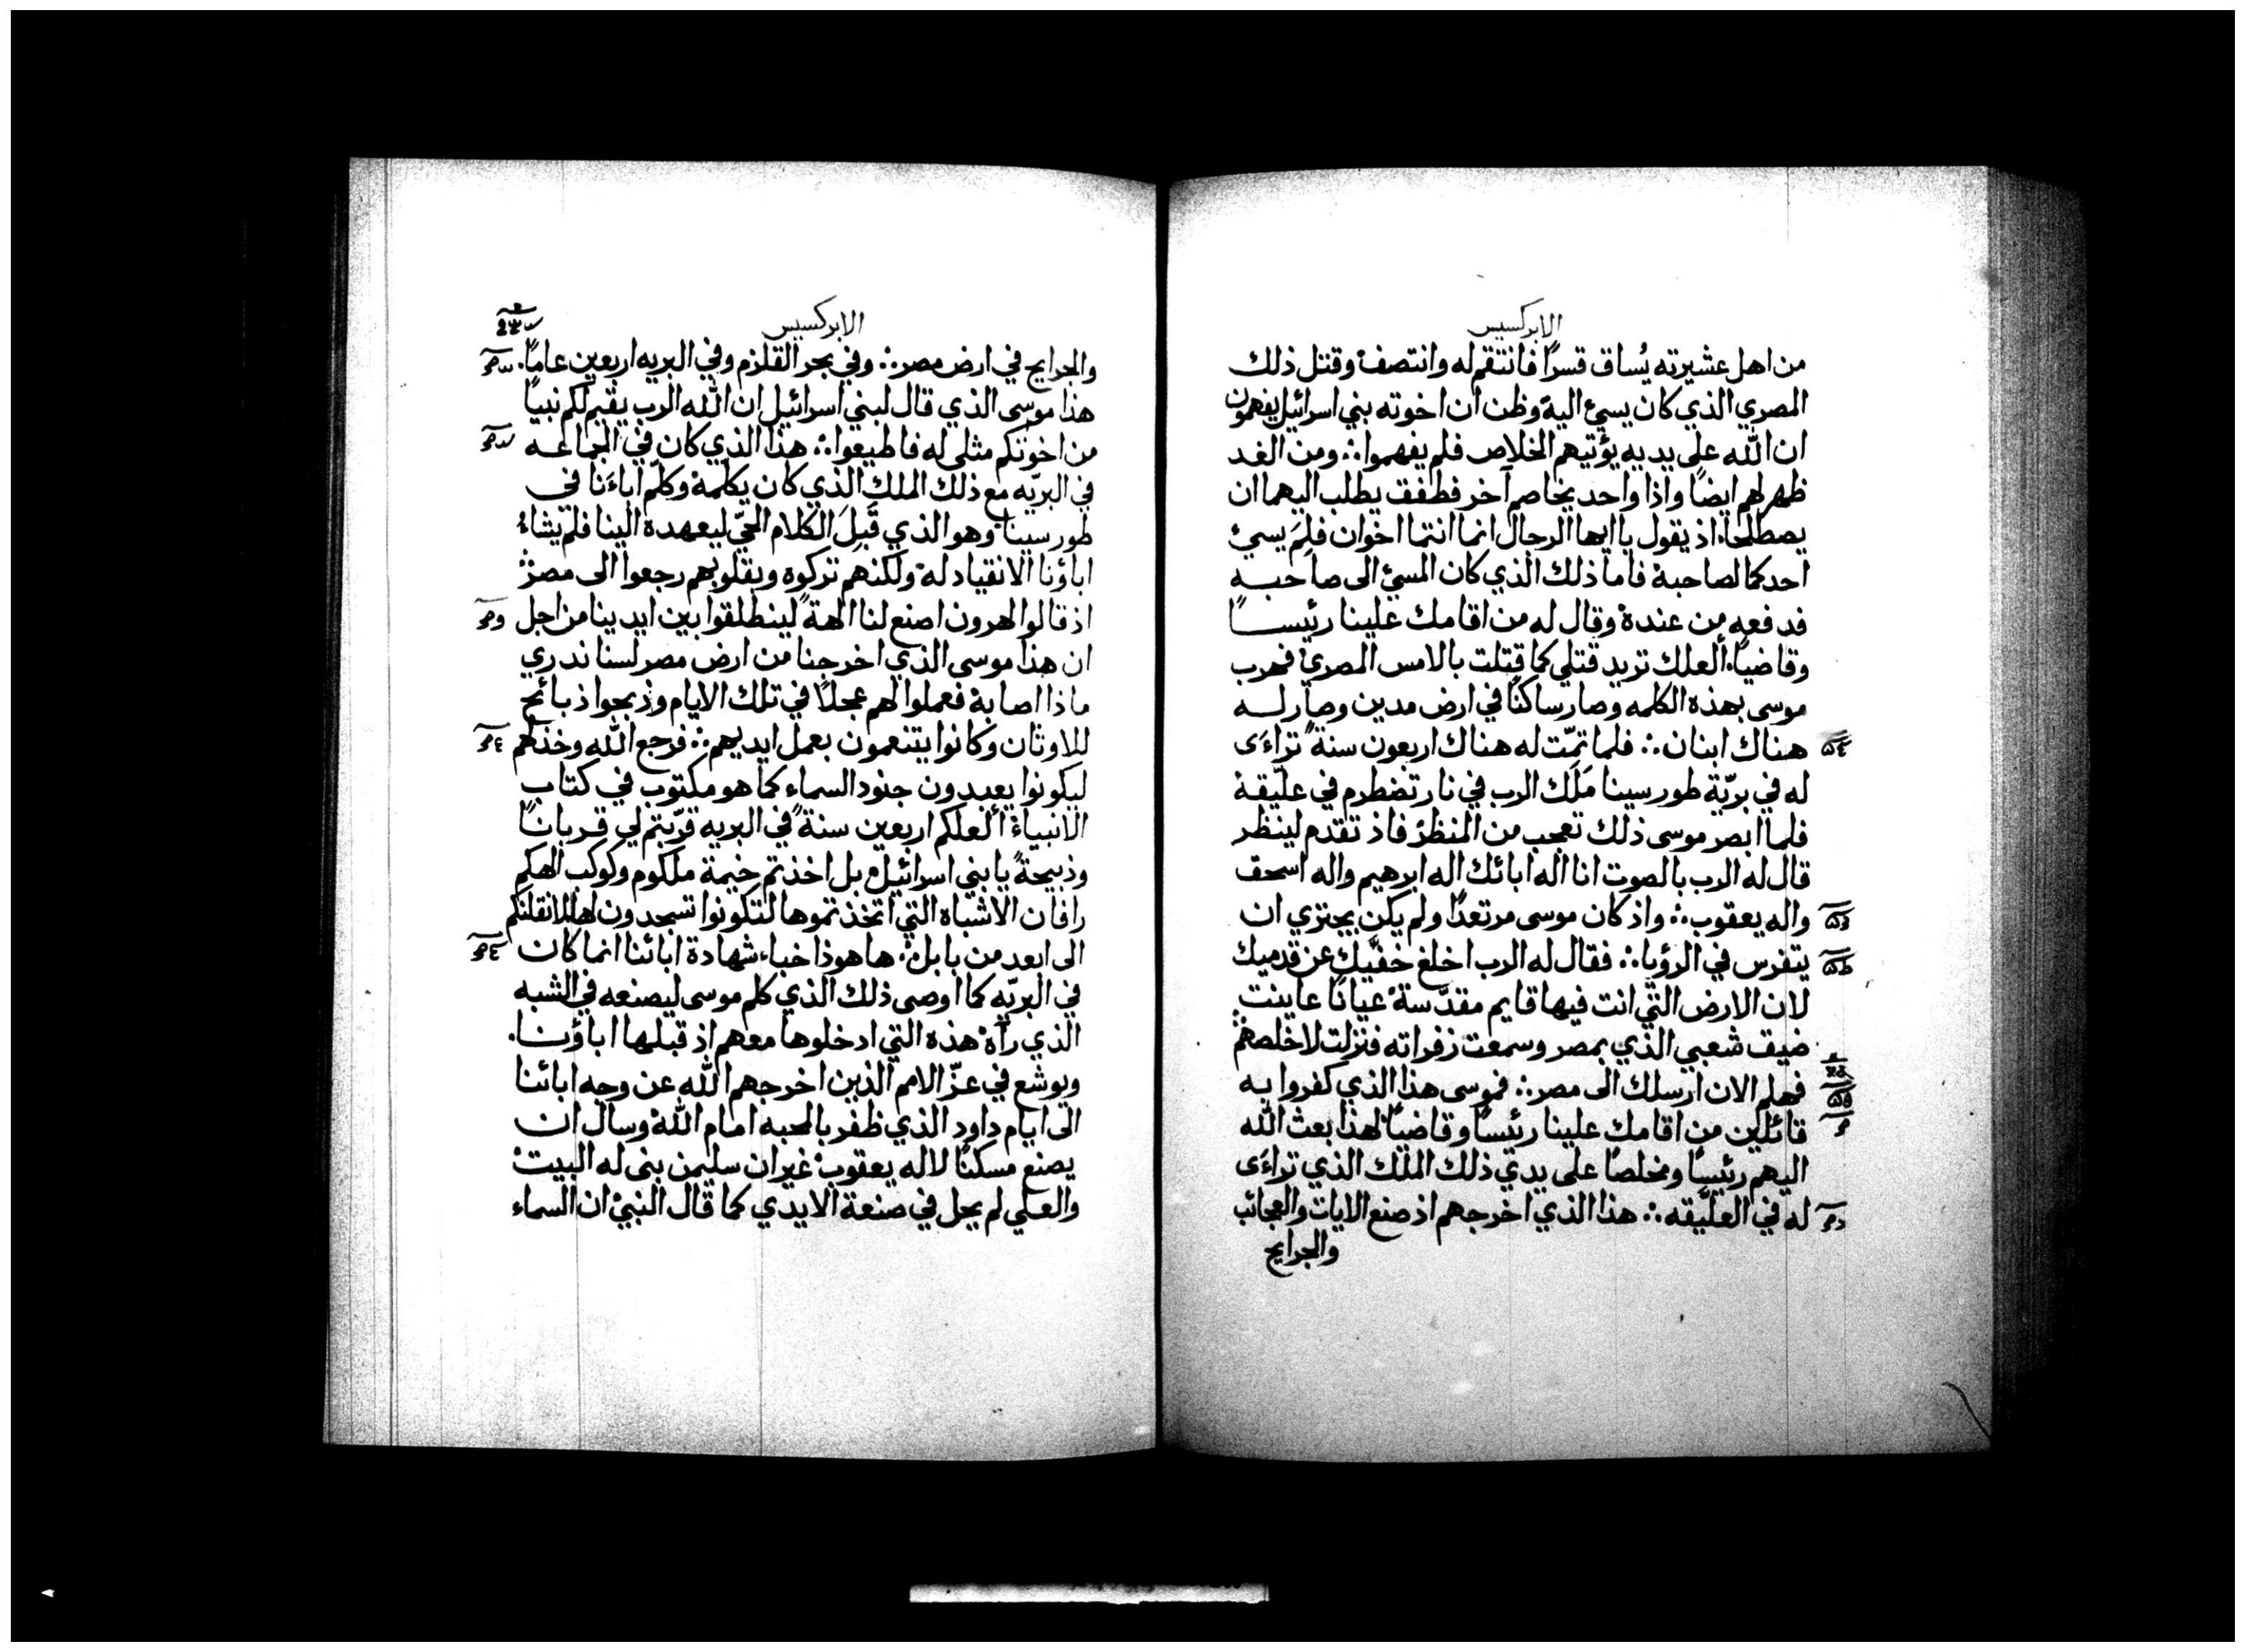 الابركسيس
من اهل عشيرته يُساق قسرًا فانتقم له وانتصف وقتل ذلك
المصري الذي كان يسيئ اليه وظن ان اخوته بني اسرائيل يفهمون
ان الله على يديه يؤتيهم الخلاص فلم يفهموا ∴ ومن الغد
ظهر لهم ايضًا واذا واحد يخاصم آخر فطفق يطلب اليهما ان
يصطلحا اذ يقول يا ايها الرجال انما انتما اخوان فلِمَ يسيئ
احدكما لصاحبه فاما ذلك الذي كان المسيئ الى صاحبه
فدفعه من عنده وقال له من اقامك علينا رئيسًا
وقاضيًا ألعلك تريد قتلي كما قتلت بالامس المصري فهرب
موسى بهذه الكلمه وصار ساكنًا في ارض مدين وصار له
هناك ابنان ∴ فلما تمّت له هناك اربعون سنة تراءَى
له في بريّة طور سينا مَلَك الرب في نار تضطرم في عليقة
فلما ابصر موسى ذلك تعجب من المنظر فاذ تقدم لينظر
قال له الرب بالصوت انا اله ابائك اله ابرهيم واله اسحق
واله يعقوب ∴ واذ كان موسى مرتعدًا ولم يكن يجتري ان
يتفرس في الرؤيا ∴ فقال له الرب اخلع خفّيك عن قدميك
لان الارض التي انت فيها قايم مقدّسة عيانًا عاينت
ضيف شعبي الذي بمصر وسمعت زفراته فنزلت لاخلصهم
فهلم الان ارسلك الى مصر ∴ فموسى هذا الذي كفروا به
قائلين من اقامك علينا رئيسًا وقاضيًا لهذا بعث الله
اليهم رئيسًا ومخلصًا على يدي ذلك الملك الذي تراءَى
له في العلّيقه ∴ هذا الذي اخرجهم اذ صنع الايات والعجائب
والجرايح
الابركسيس
والجرايح في ارض مصر ∴ وفي بحر القلزم وفي البريه اربعين عامًا.
هذا موسى الذي قال لبني اسرائيل ان الله الرب يقيم لكم نبيًا
من اخوتكم مثلى له فاطيعوا ∴ هذا الذي كان في الجماعه
في البريّه مع ذلك الملك الذي كان يكلمه وكلّم اباءَنا في
طور سينا وهو الذي قَبِلَ الكلام الحيّ ليعهده الينا فلم يشاءُ
اباؤنا الانقياد له ولكنهم تركوه وبقلوبهم رجعوا الى مصر
اذ قالوا لهرون اصنع لنا الهةً لينطلقوا بين ايدينا من اجل
ان هذا موسى الذي اخرجنا من ارض مصر لسنا ندري
ماذا اصابه فعملوا لهم عجلًا في تلك الايام وذبحوا ذبائح
للاوثان وكانوا يتنعمون بعمل ايديهم ∴ فرجع الله وخذلهم
ليكونوا يعبدون جنود السماء كما هو مكتوب في كتاب
الانبياء ألعلكم اربعين سنةً في البريه قرّبتم لي قربانًا
وذبيحةً يا بني اسرائيل بل اخذتم خيمة ملكوم وكوكب الهكم
رافان الاشباه التي اتخذتموها لتكونوا تسجدون لها لانقلنكم
الى ابعد من بابل ∴ ها هوذا خباء شهادة ابائنا انما كان
في البريّه كما اوصى ذلك الذي كلم موسى ليصنعه في الشبه
الذي رآه هذه التي ادخلوها معهم اذ قبلها اباؤنا.
ويوشع في عزّ الامم الذين اخرجهم الله عن وجه ابائنا
الى ايام داود الذي ظفر بالمحبه امام الله وسال ان
يصنع مسكنًا لاله يعقوب غير ان سليمن بنى له البيت
والعلي لم يحل في صنعة الايدي كما قال النبي ان السماء